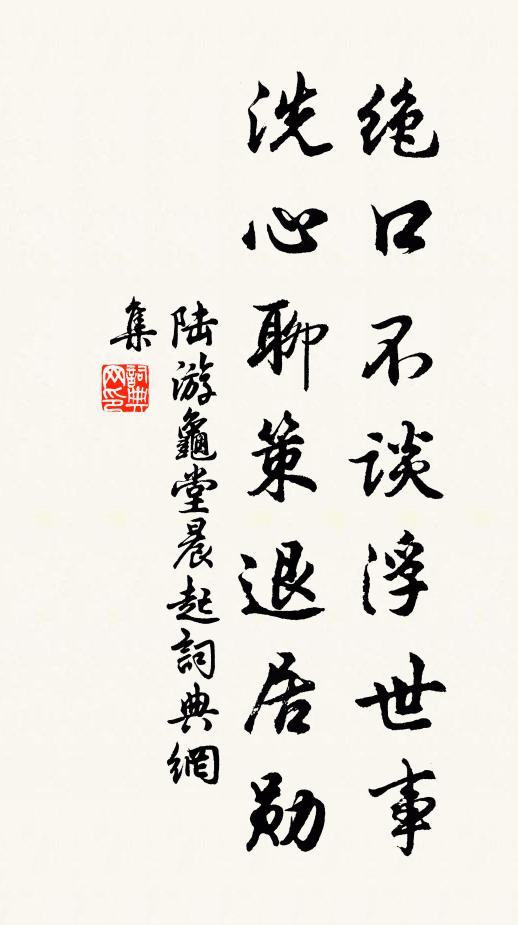 绝口不谈浮世事
洗心聊策退居勋
陆游龜堂晨起詞典網
集
詞典
网印